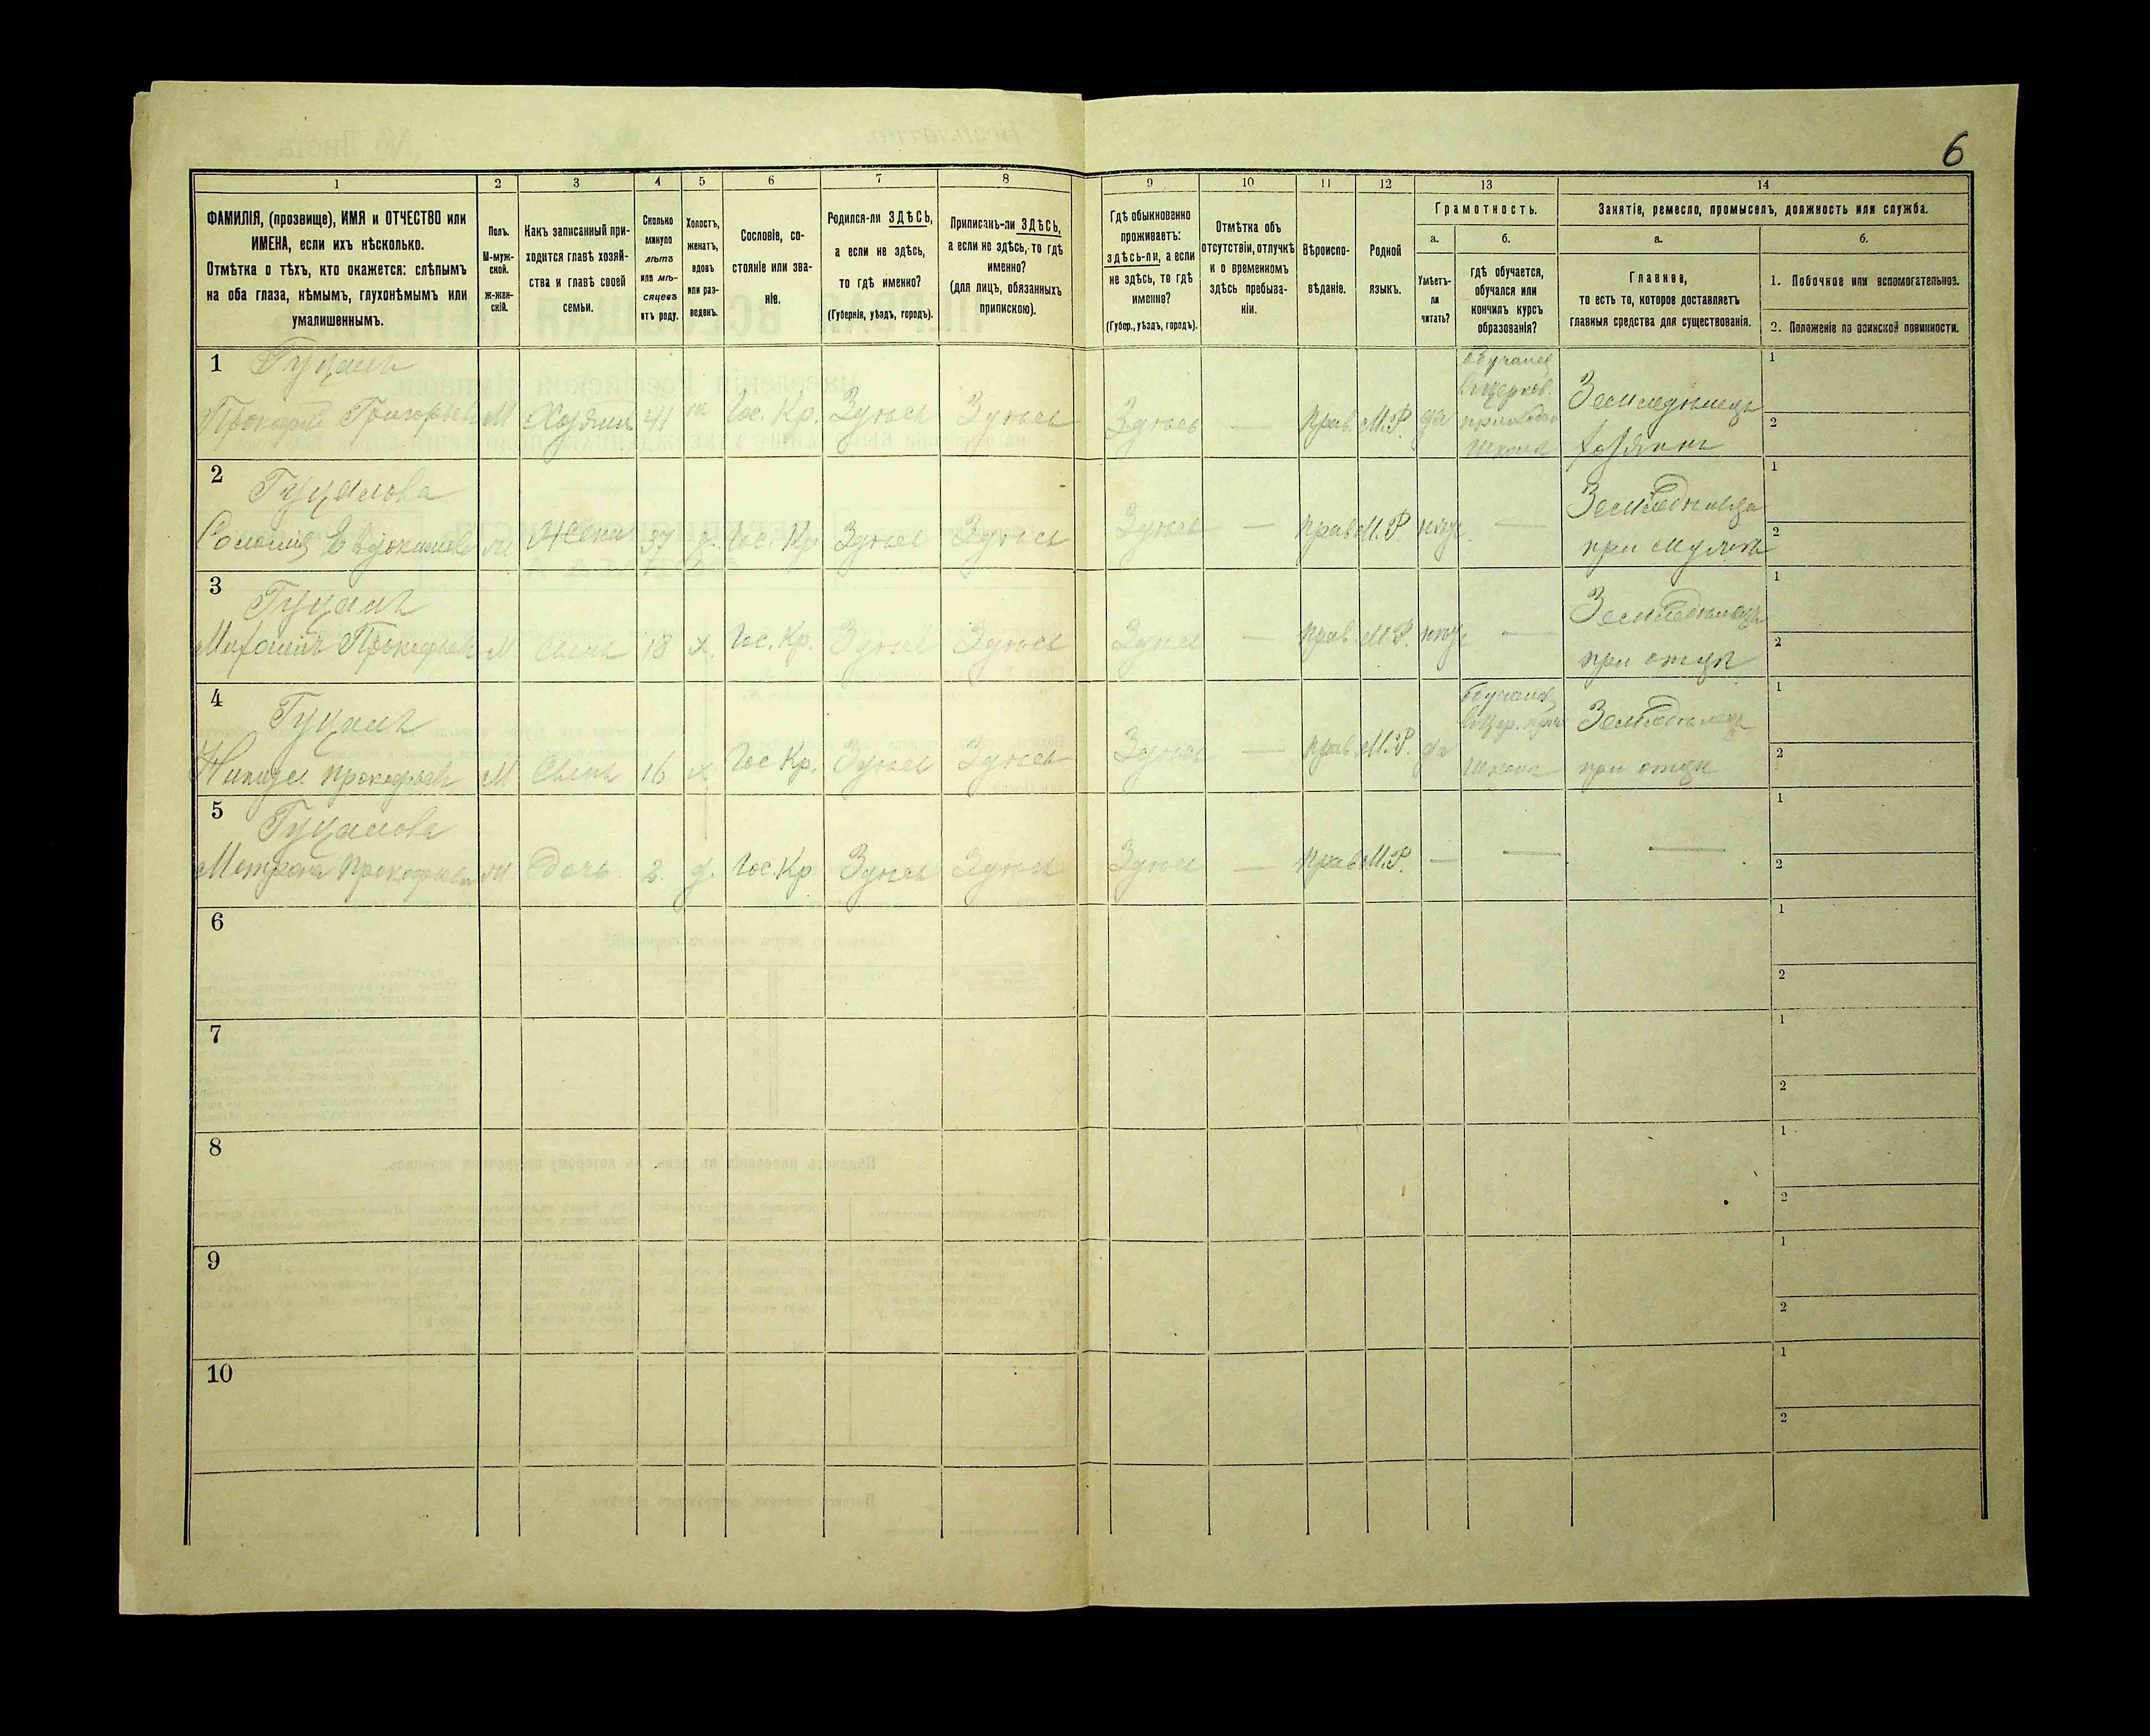 6
1 2 3 4 5 6 7 8 9 10 11 12 13 14
ФАМИЛІЯ, (прозвище), ИМЯ и ОТЧЕСТВО или
ИМЕНА, если ихъ нѣсколько.
Отмѣтка о тѣхъ, кто окажется: слѣпымъ
на оба глаза, нѣмымъ, глухонѣмымъ или
умалишеннымъ.
Полъ.
М-муж-
ской.
ж-жен-
скій.
Какъ записанный при-
ходится главѣ хозяй-
ства и главѣ своей
семьи.
Сколько
минуло
лѣтъ
или мѣ-
сяцевъ
отъ роду.
Холостъ,
женатъ,
вдовъ
или раз-
веденъ.
Сословіе, со-
стояніе или зва-
ніе.
Родился-ли ЗДѢСЬ,
а если не здѣсь,
то гдѣ именно?
(Губернія, уѣздъ, городъ).
Приписанъ-ли ЗДѢСЬ,
а если не здѣсь, то гдѣ
именно?
(для лицъ, обязанныхъ
припискою).
Гдѣ обыкновенно
проживаетъ:
здѣсь-ли, а если
не здѣсь, то гдѣ
именно?
(Губер., уѣздъ, городъ).
Отмѣтка объ
отсутствіи, отлучкѣ
и о временномъ
здѣсь пребыва-
ніи.
Вѣроиспо-
вѣданіе.
Родной
языкъ.
Грамотность.
а.
Умѣетъ-
ли
читать?
б.
гдѣ обучается,
обучался или
кончилъ курсъ
образованія?
Занятіе, ремесло, промыселъ, должность или служба.
а.
Главное,
то есть то, которое доставляетъ
главныя средства для существованія.
б.
1. Побочное или вспомогательное.
2. Положеніе по воинской повинности.
1 Гуцалъ
Прокофій Григорьевъ М Хозяинъ 41 Гос. Кр. Здѣсь Здѣсь Здѣсь — Прав. М.Р. да
Обучался
въ церков.
приход.
школѣ
Земледѣлецъ
хозяинъ
1
2
2 Гуцалова
Соломія Евдокимова Жена 37 Гос. Кр Здѣсь Здѣсь Здѣсь — Прав М.Р. —
Земледѣлица
при мужѣ
1
2
3 Гуцалъ
Михаилъ Прокофьевъ М Сынъ 18 х. Гос. Кр. Здѣсь Здѣсь Здѣсь — Прав. М.Р. —
Земледѣлецъ
при отцѣ
1
2
4 Гуцалъ
Прокофьевъ М Сынъ 16 х. Гос. Кр. Здѣсь Здѣсь Здѣсь — Прав. М.Р. да
Обучался
въ цер. прих.
школѣ
Земледѣлецъ
при отцѣ
1
2
5 Гуцалова
Прокофьева Дочь 2. д. Гос. Кр Здѣсь Здѣсь Здѣсь — Прав М.Р. — — —
1
2
6
1
2
7
1
2
8
1
2
9
1
2
10
1
2